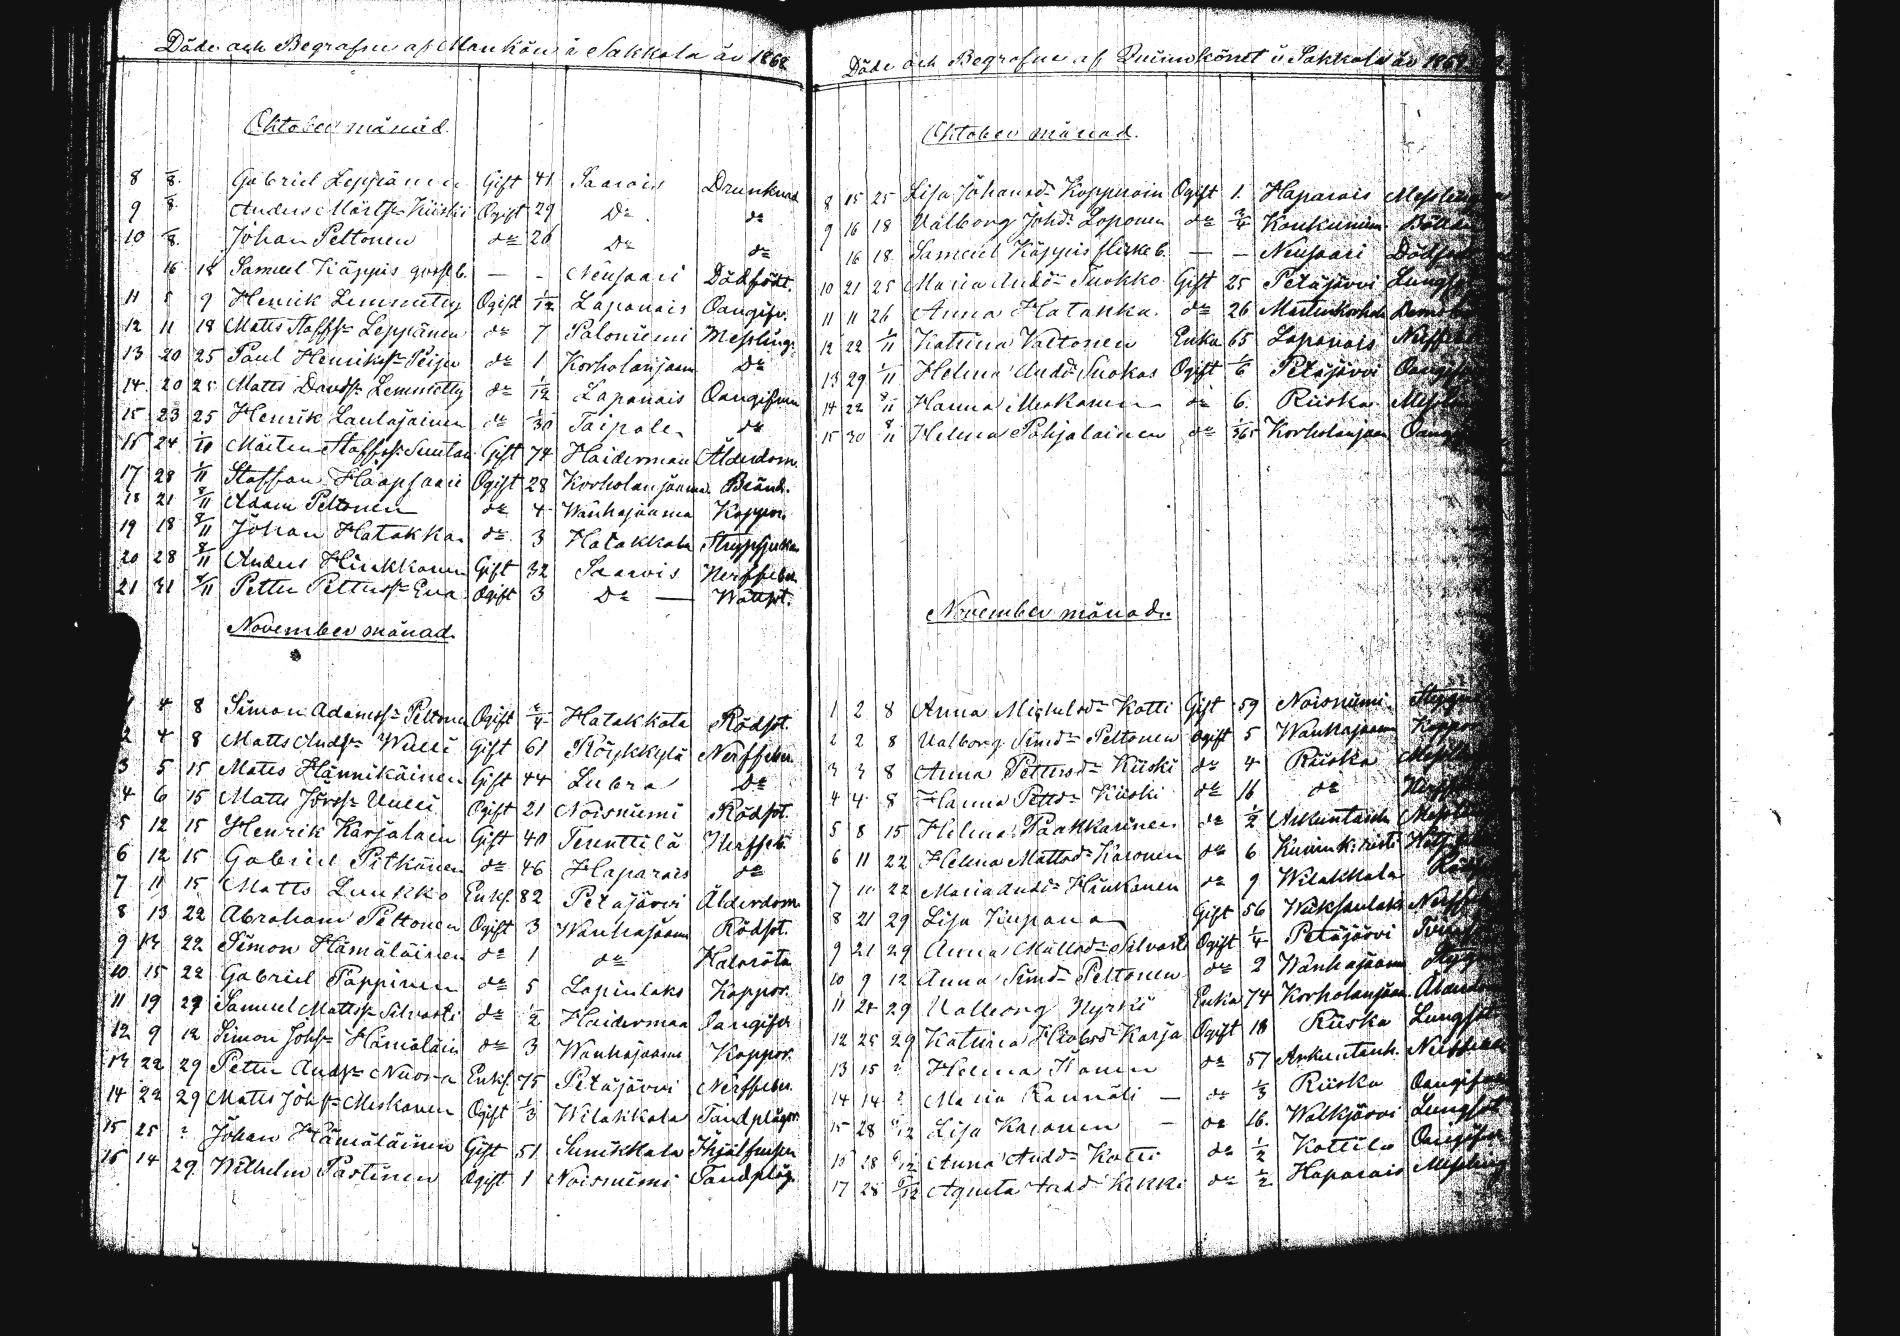 Döde och Begrafne af Mankön i Sakkola år 1868
Oktober månad.
8 8/8. Gabriel Leppänen Gift 41 Saarois Drunknad
9 8/8. Anders Mårtss. Kiiski Ogift 29 Do do
10 8/8. Johan Peltonen do 26 Do do
16 18 Samuel Käppis gosseb. — - Neusaari Dödfödt.
11 5 9 Henrik Lemmetty Ogift 1/12 Lapanais Oangifv.
12 11 18 Matts Staffs. Leppänen do 7 Saloniemi Messling.
13 20 25 Paul Henrikss. Peiju do 1 Korholanjaam Do
14 20 25 Matts Davidss. Lemmetty do 1/12 Lapanais Oangifven
15 23 25 Henrik Laulajainen do 1/30 Taipale do
16 24 1/11 Mårten Staffss. Suutari Gift 74 Haiderman Ålderdom.
17 28 1/11 Staffan Haapsaari Ogift 28 Korholanjaama Bränd.
18 21 8/11 Adam Peltonen do 4 Wanhajaama Koppor.
19 18 8/11 Johan Hatakka do 3 Hatakkala Strypsjuka
20 28 8/11 Anders Hinkkanen Gift 32 Saarois Nerffeber
21 31 8/11 Petter Petterss. Eva Ogift 3 Do — Wattst.
November månad.
1 4 8 Simon Adamss. Peltonen Ogift 3/4 Hatakkala Rödsot.
2 4 8 Matts Andss. Wuori Gift 61 Röykkylä Nerffeber
3 5 15 Matts Hännikäinen Gift 44 Lubra Do
4 6 15 Matts Jörss. Ogift 21 Noisniemi Rödsot.
5 12 15 Henrik Karjalain Gift 40 Terenttilä Nerffeb.
6 12 15 Gabriel Pitkänen do 46 Haparais do
7 11 15 Matts Luukko Enkl. 82 Petäjärvi Ålderdom
8 13 22 Abraham Peltonen Ogift 3 Wanhajaam Rödsot.
9 13 22 Simon Hämäläinen do 1 do Halsröta
10 15 22 Gabriel Pappinen do 5 Lapinlaks Koppor.
11 19 29 Samuel Mattss. Silvasti do 1/2 Haiderman Oangifv
12 9 12 Simon Johss. Hämäläin do 3 Wanhajaama Koppor.
13 22 29 Petter Andss. Nuora Enkl. 75 Petäjärvi Nerffeber
14 22 29 Matts Johss. Meskanen Ogift 1/3 Wilakkala Tandplågor
15 25 ? Johan Hämäläinen Gift 51 Sunikkala Ihjälfrusen
16 14 29 Wilhelm Pastinen Ogift 1 Noisniemi Tandplåg.
Döde och Begrafne af Quinnkönet i Sakkola år 1868.
Oktober månad.
8 15 25 Lisa Johansd. Kopperoin Ogift 1. Haparais Messling
9 16 18 Walborg Johd. Loponen do 3/4 Kaukuniemi
16 18 Samuel Käppis flickeb. — - Neusaari Dödfödt
10 21 25 Maria Andd. Tuokko Gift 25 Petäjärvi
11 11 26 Anna Hatakka do 26
12 22 1/11 Katrina Valtonen Enka 65 Lapanais Nerffeber
13 29 1/11 Helena Andd. Tuokas Ogift 1/6 Petäjärvi Oangifv
14 22 8/11 Hanna Meskanen do 6. Riiska Messling
15 30 8/11 Helena Pohjalainen do 1/365 Korholanjaam Oangifv
November månad.
1 2 8 Anna Michelsd. Kotti Gift 59 Noisniemi
2 2 8 Walborg Simd. Peltonen Ogift 5 Wanhajaam Koppor
3 3 8 Anna Pettersd. Kiiski do 4 Riiska Messling
4 4 8 Hanna Petterd. Kiiski do 16 do Nerffeb
5 8 15 Helena Paakkarinen do 1/2 Arkuntanh Messling
6 11 22 Helena Mattsd. Kasonen do 6
7 10 22 Maria Andd. Hinkanen do 9 Wilakkala Röds
8 21 29 Lisa Kiipana Gift 56 Nerffeb
9 21 29 Anna Mattsd. Silvasti Ogift 1/4 Petäjärvi
10 9 12 Anna Simd. Peltonen do 2 Wanhajaam
11 24 29 Walborg Nyrki Enka 74 Korholanjaam Ålderdom
12 25 29 Katrina Karja Ogift 18 Riiska Lungsot
13 15 ? Helena Ikonen do 57 Arkuntanh. Nerffeber
14 14 ? Maria Rannäli — do 1/3 Riiska Oangifven
15 28 6/12 Lisa Kasonen — do 16. Walkjärvi Lungsot
16 28 6/12 Anna Andd. Kotti do 1/2 Kottila Oangifven
17 28 6/12 Agneta Kekki do 1/2 Haparais Messling